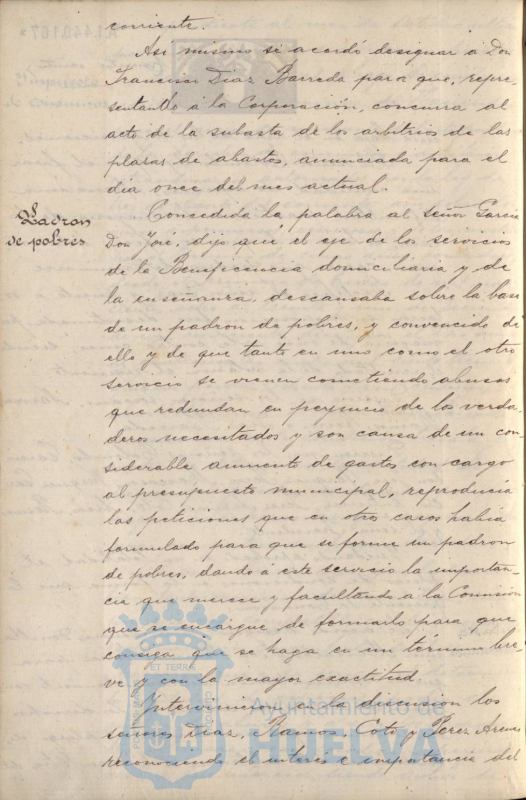 corriente.
Asi mismo se acordó designar á Don
Francisco Diaz Barreda para que, repre-
sentando á la Corporación, concurra al
acto de la subasta de los arbitrios de las
plazas de abastos, anunciada para el
dia once del mes actual.
Padron
de pobres
Concedida la palabra al Señor Garcia
Don José, dijo que el eje de los servicios
de la Beneficencia domiciliaria y de
la enseñanza, descansaba sobre la base
de un padron de pobres, y convencido de
ello y de que tanto en uno como el otro
servicio se vienen cometiendo abusos
que redundan en perjuicio de los verda-
deros necesitados y son causa de un con
siderable aumento de gastos con cargo
al presupuesto municipal, reproducia
las peticiones que en otro casos habia
formulado para que se forme un padron
de pobres, dando á este servicio la importan-
cia que merece y facultando a la Comision
que se encargue de formarlo para que
consiga que se haga en un término bre-
ve y con la mayor exactitud.
Intervinieron en la discusion los
señores Diaz, Ramos, Coto y Perez Arenas
reconociendo el interes é importancia del
ET TERRÆ
Ayuntamiento de
HUELVA